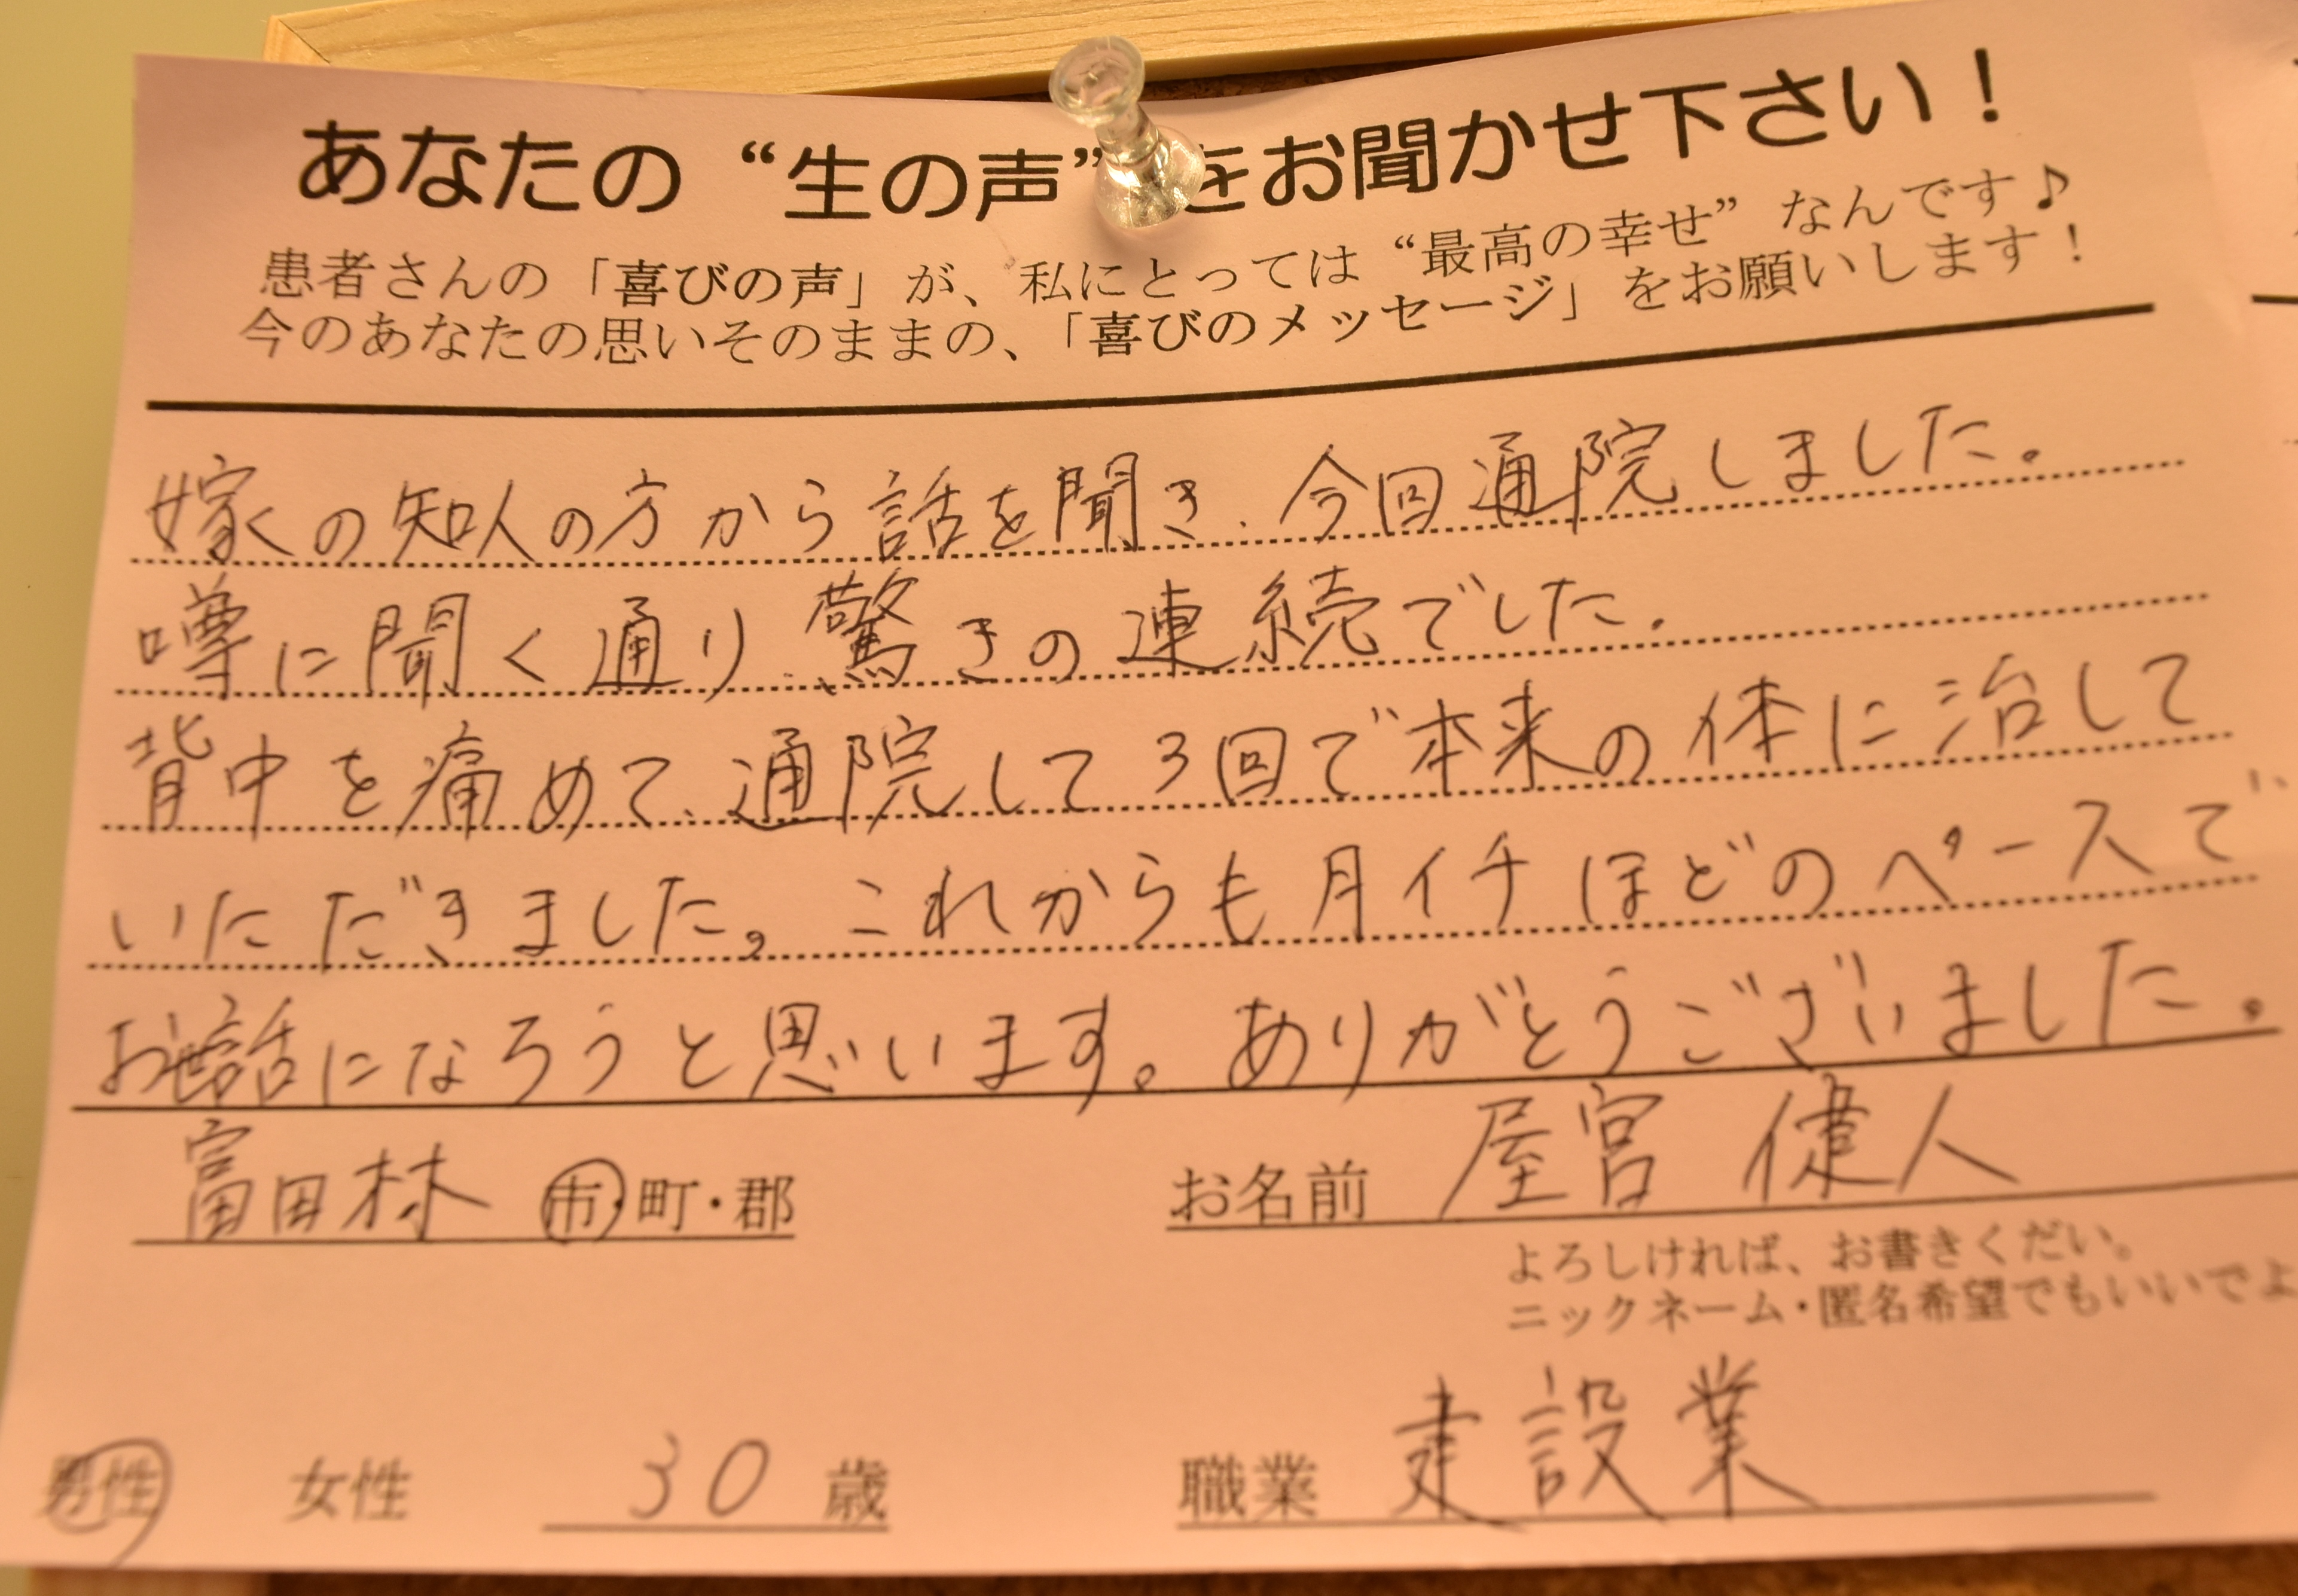 あなたの “生の声” をお聞かせ下さい！
患者さんの「喜びの声」が、私にとっては “最高の幸せ” なんです♪
今のあなたの思いそのままの、「喜びのメッセージ」をお願いします！
嫁の知人の方から話を聞き、今回通院しました。
噂に聞く通り、驚きの連続でした。
背中を痛めて、通院して3回で本来の体に治して
いただきました。これからも月イチほどのペースで
お世話になろうと思います。ありがとうございました。
富田林 市・町・郡 お名前 屋宮 健人
よろしければ、お書きくだい。
ニックネーム・匿名希望でもいいでよ
男性 女性 30 歳 職業 建設業